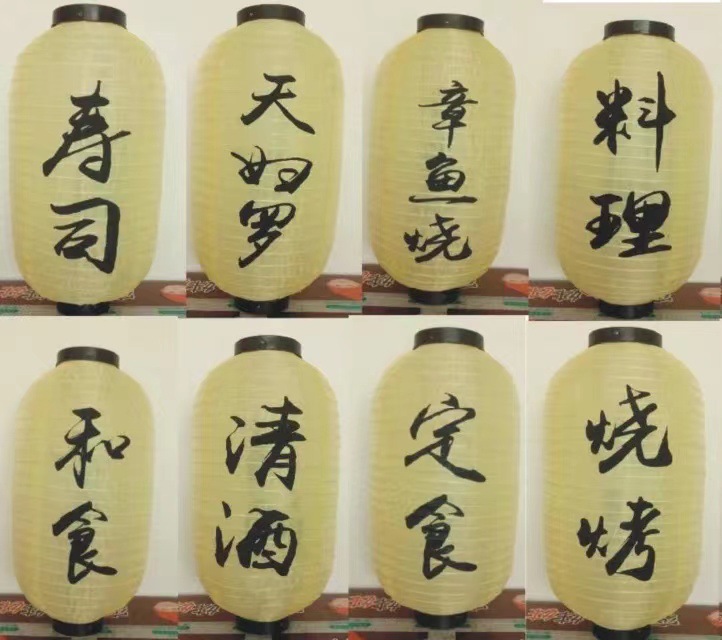 寿司
天妇罗
章鱼烧
料理
和食
清酒
定食
烧烤